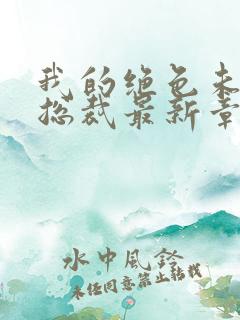 我的绝色未
总裁最新章
水中风铃
未经同意禁止转载